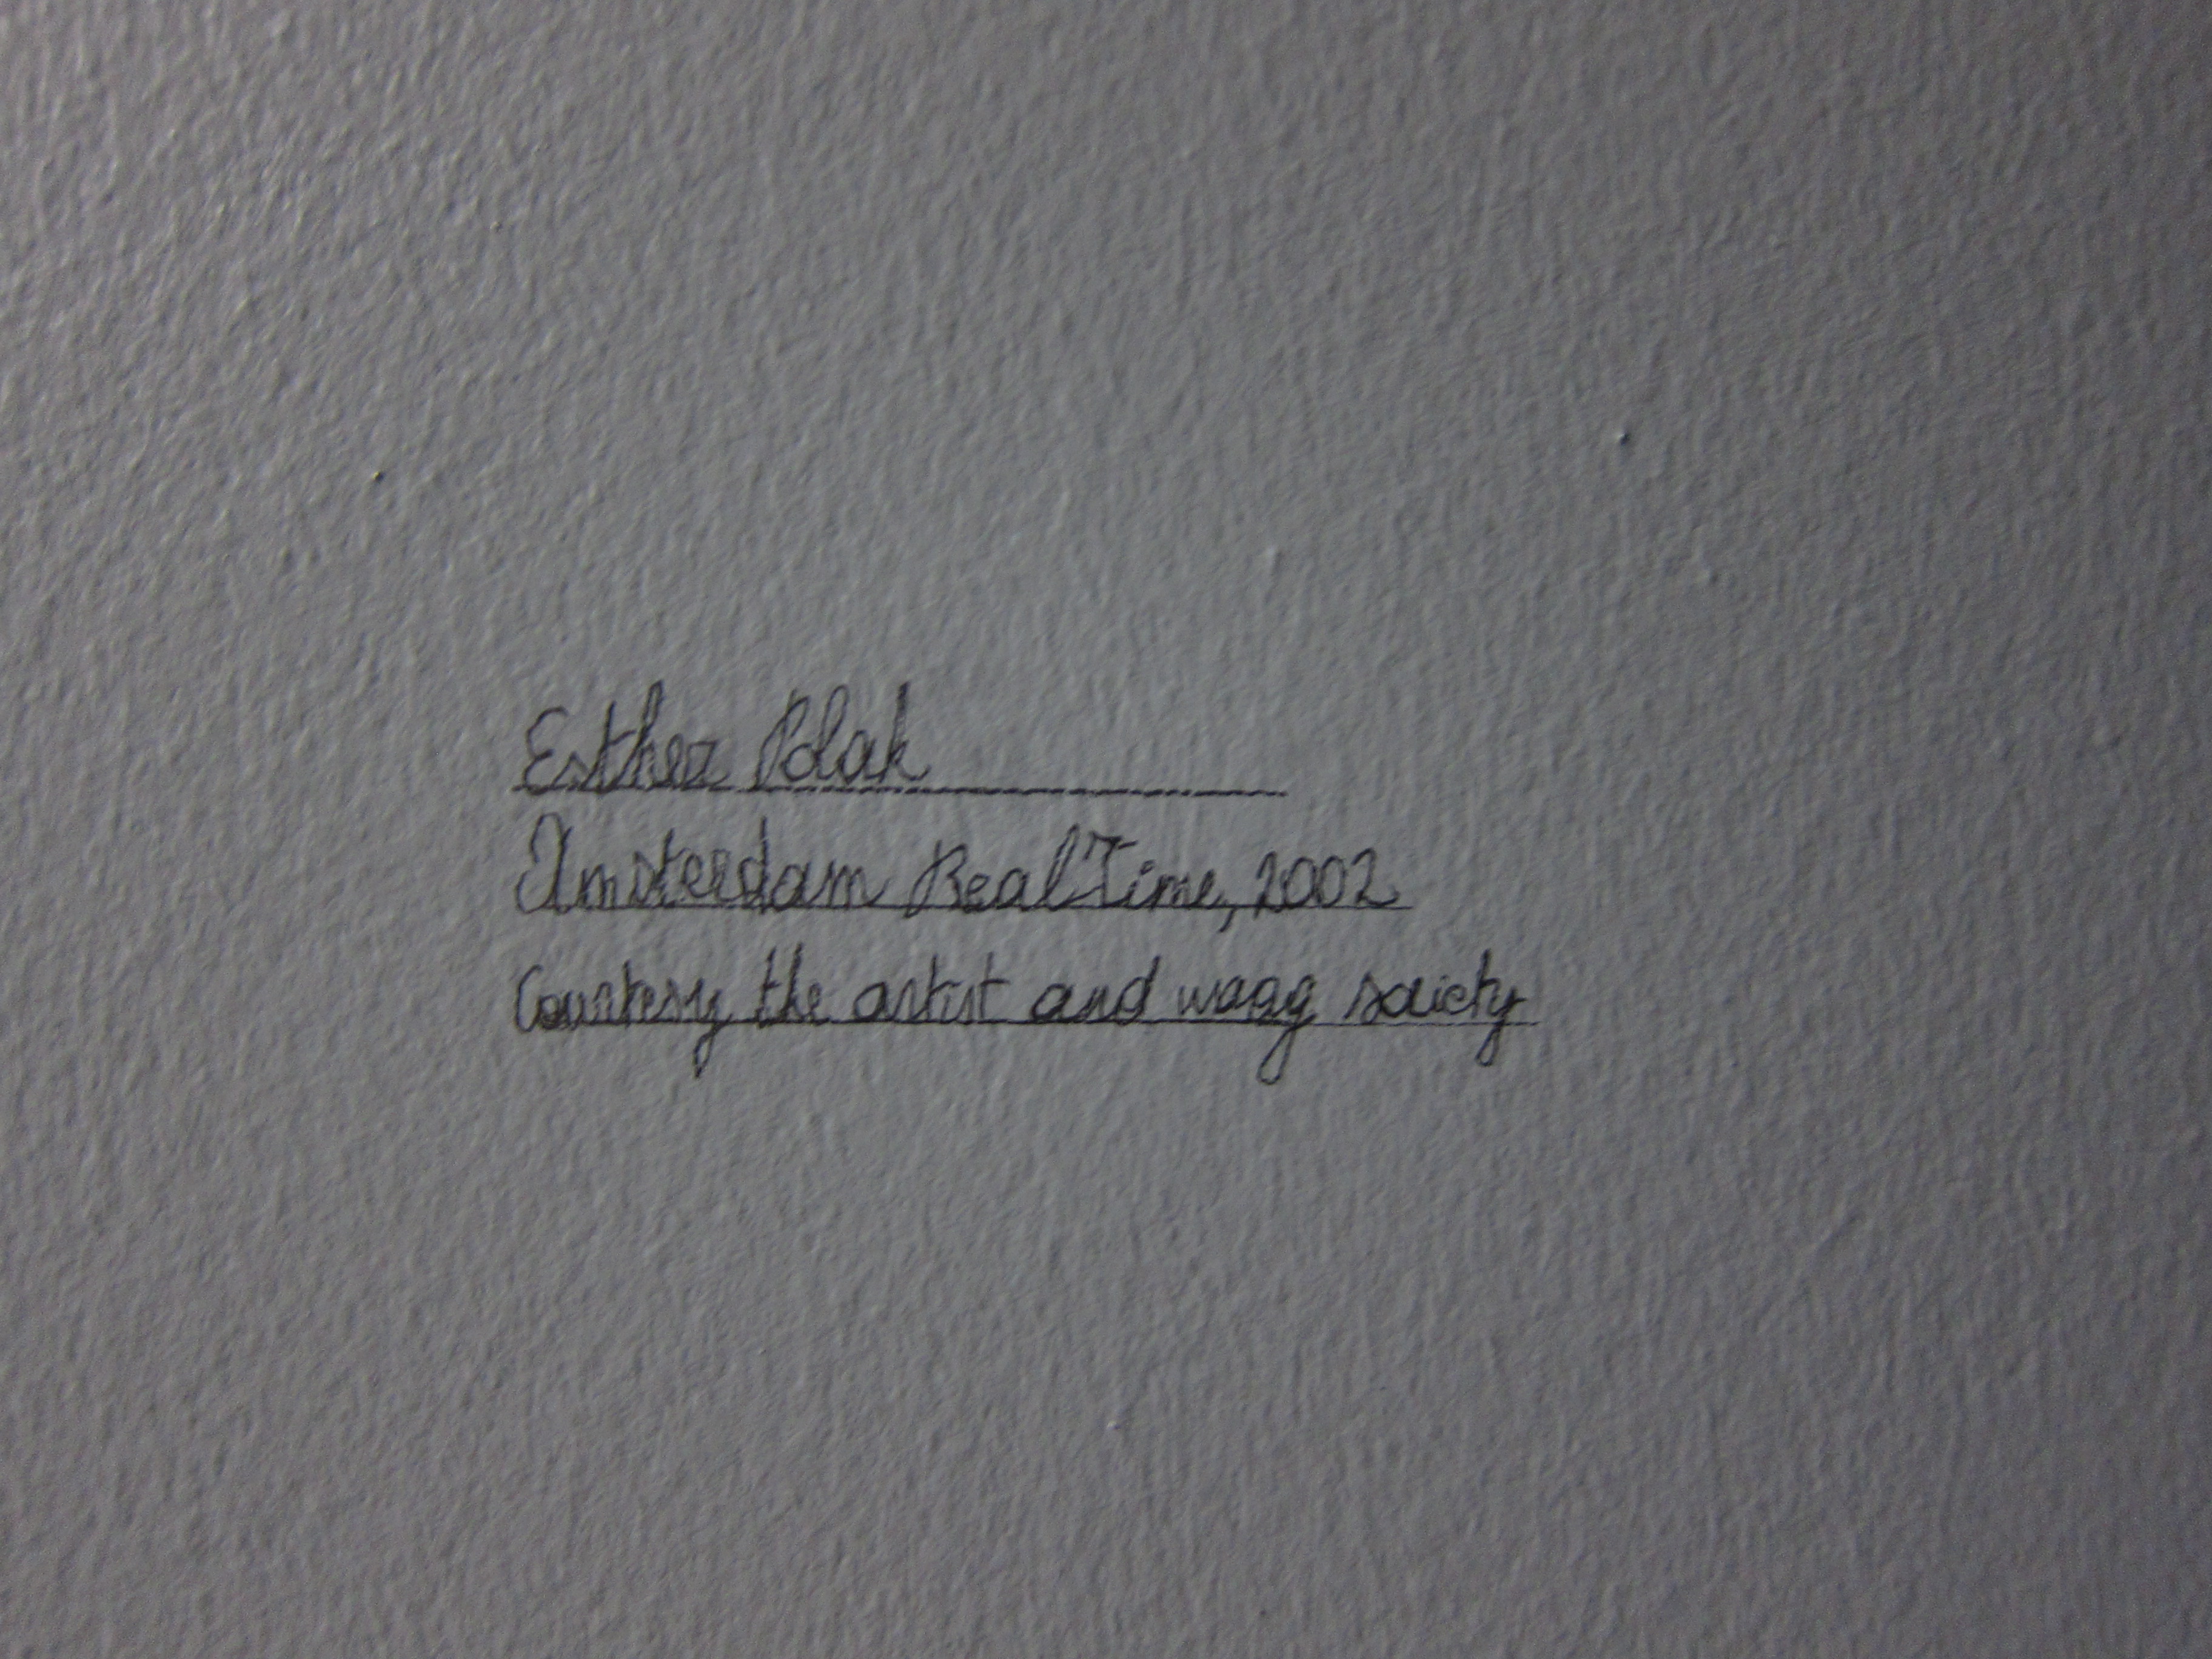 Esther Polak
Amsterdam RealTime, 2002
Courtesy the artist and waag society